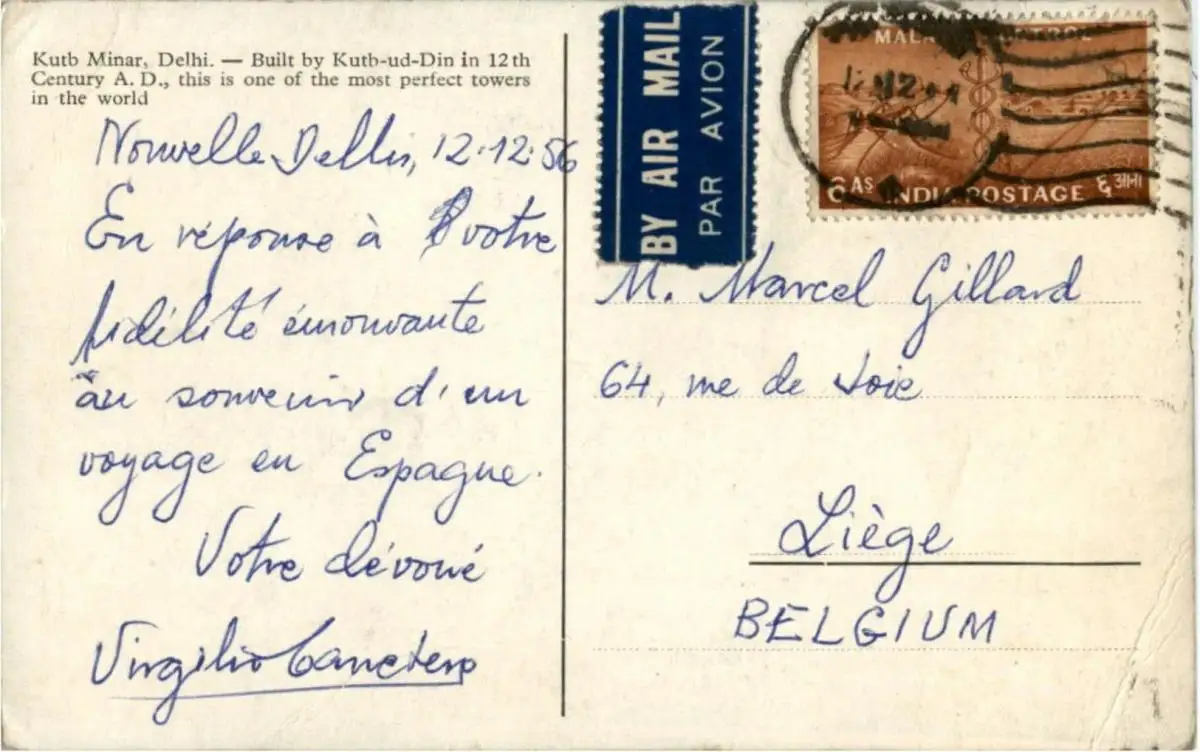 Kutb Minar, Delhi. — Built by Kutb-ud-Din in 12th
Century A. D., this is one of the most perfect towers
in the world
Nouvelle Delhi, 12.12.56
En réponse à votre
fidélité émouvante
au souvenir d'un
voyage en Espagne.
Votre dévoué
Virgilio
BY AIR MAIL
PAR AVION
6 AS INDIA POSTAGE ६ आना
M. Marcel Gillard
64, rue de Joie
Liège
BELGIUM